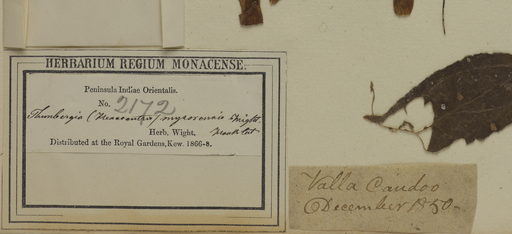 HERBARIUM REGIUM MONACENSE.
Peninsula Indiae Orientalis.
No. 2172
Thunbergia (Hexacentris) mysorensis Wight.
Herb. Wight.
Distributed at the Royal Gardens, Kew. 1866-8.
Valla Candoo
December 1850-